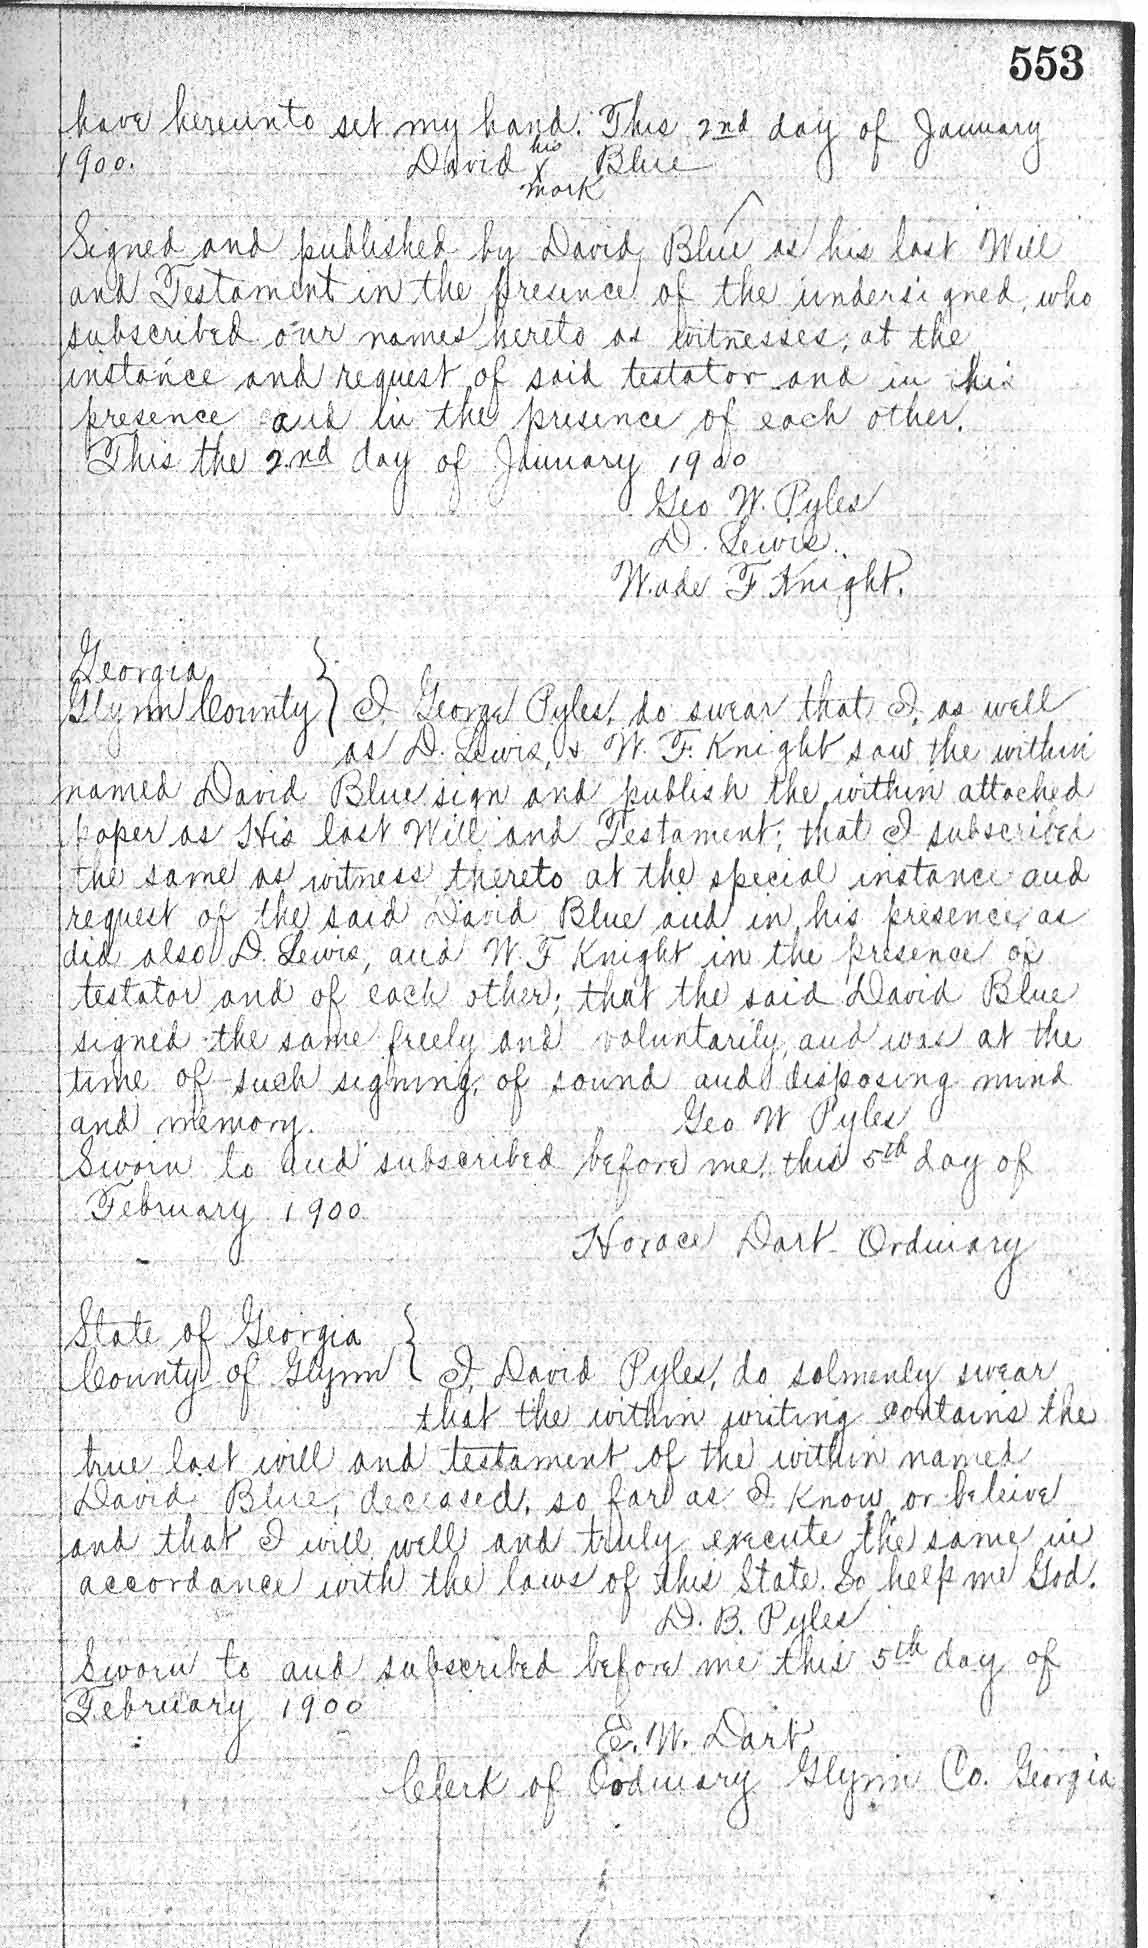 553
have hereunto set my hand. This 2nd day of January
1900. David his x mark Blue
Signed and published by David Blue as his last Will
and Testament in the presence of the undersigned, who
subscribed our names hereto as witnesses, at the
instance and request of said testator and in his
presence and in the presence of each other.
This the 2nd day of January 1900
Geo W. Pyles
D. Lewis.
Wade F Knight.
Georgia
Glynn County } I, George Pyles, do swear that I, as well
as D. Lewis, & W. F. Knight saw the within
named David Blue sign and publish the within attached
paper as His last Will and Testament; that I subscribed
the same as witness thereto at the special instance and
request of the said David Blue and in his presence, as
did also D. Lewis, and W. F Knight in the presence of
testator and of each other; that the said David Blue
signed the same freely and voluntarily, and was at the
time of such signing, of sound and disposing mind
and memory. Geo W Pyles
Sworn to and subscribed before me, this 5th day of
February 1900
Horace Dart Ordinary
State of Georgia
County of Glynn } I, David Pyles, do solmenly swear
that the within writing contains the
true last will and testament of the within named
David Blue, deceased, so far as I know or beleive
and that I will well and truly execute the same in
accordance with the laws of this State. So help me God.
D. B. Pyles
Sworn to and subscribed before me this 5th day of
February 1900
E. W. Dart
Clerk of Ordinary Glynn Co. Georgia